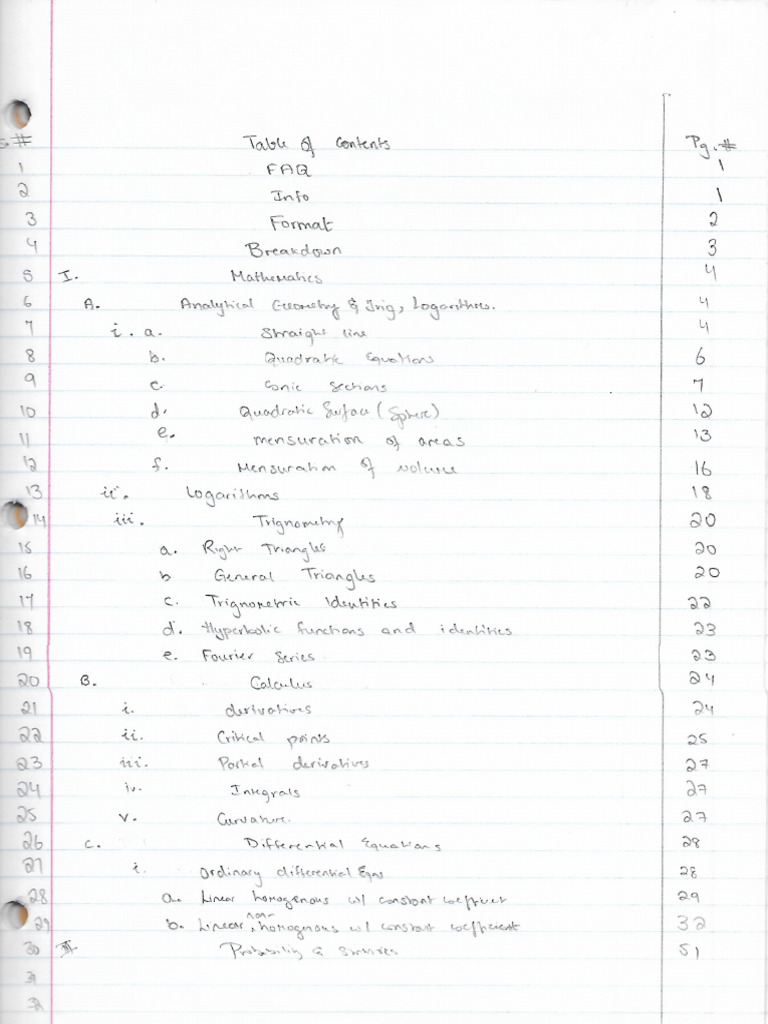 S.# Table of Contents Pg.#
1 FAQ 1
2 Info 1
3 Format 2
4 Breakdown 3
5 I. Mathematics 4
6 A. Analytical Geometry & Trig, Logarithms. 4
7 i. a. Straight line 4
8 b. Quadratic Equations 6
9 c. Conic Sections 7
10 d. Quadratic Surface (Sphere) 12
11 e. mensuration of areas 13
12 f. Mensuration of volume 16
13 ii. Logarithms 18
14 iii. Trignometry 20
15 a. Right Triangles 20
16 b General Triangles 20
17 c. Trignometric Identities 22
18 d. Hyperbolic functions and identities 23
19 e. Fourier Series 23
20 B. Calculus 24
21 i. derivatives 24
22 ii. Critical points 25
23 iii. Partial derivatives 27
24 iv. Integrals 27
25 v. Curvature. 27
26 C. Differential Equations 28
27 i. Ordinary differential Eqns 28
28 a. Linear homogenous w/ constant coefficient 29
29 b. Linear, non-homogenous w/ constant coefficient 32
30 II. Probability & Statistics 51
31
32